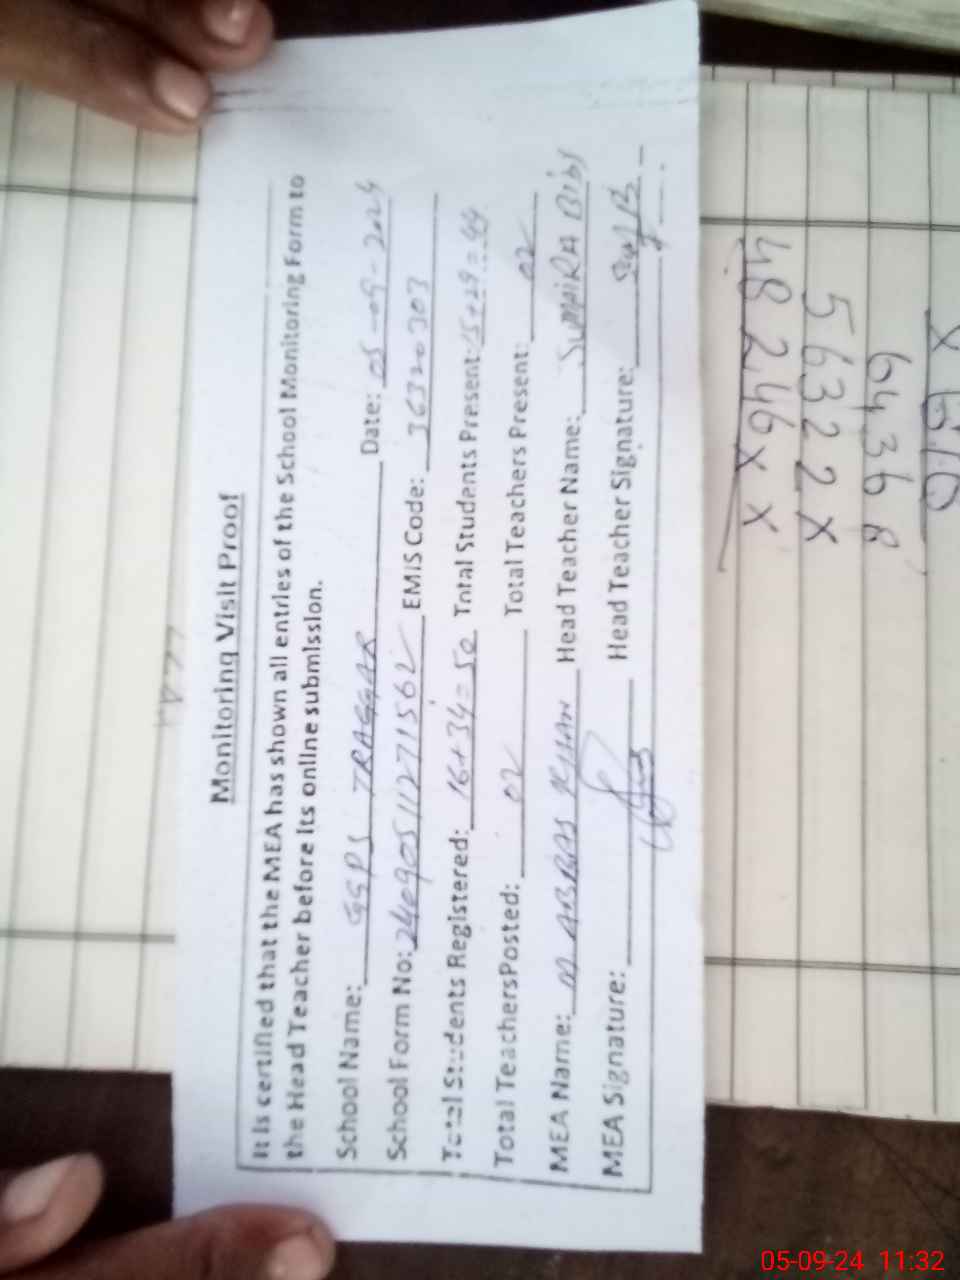 Monitoring Visit Proof
It is certified that the MEA has shown all entries of the School Monitoring Form to
the Head Teacher before its online submission.
School Name: GGPS TRAGGAR Date: 05-09-2024
School Form No: 240905112715562 EMIS Code: 36320303
Total Students Registered: 16+34=50 Total Students Present: 15+29=44
Total Teachers Posted: 02 Total Teachers Present: 02
MEA Name: M ABBAS KHAN Head Teacher Name: SUMAIRA Bibi
MEA Signature: Head Teacher Signature:
64368
56322x
48246xx
05-09-24 11:32